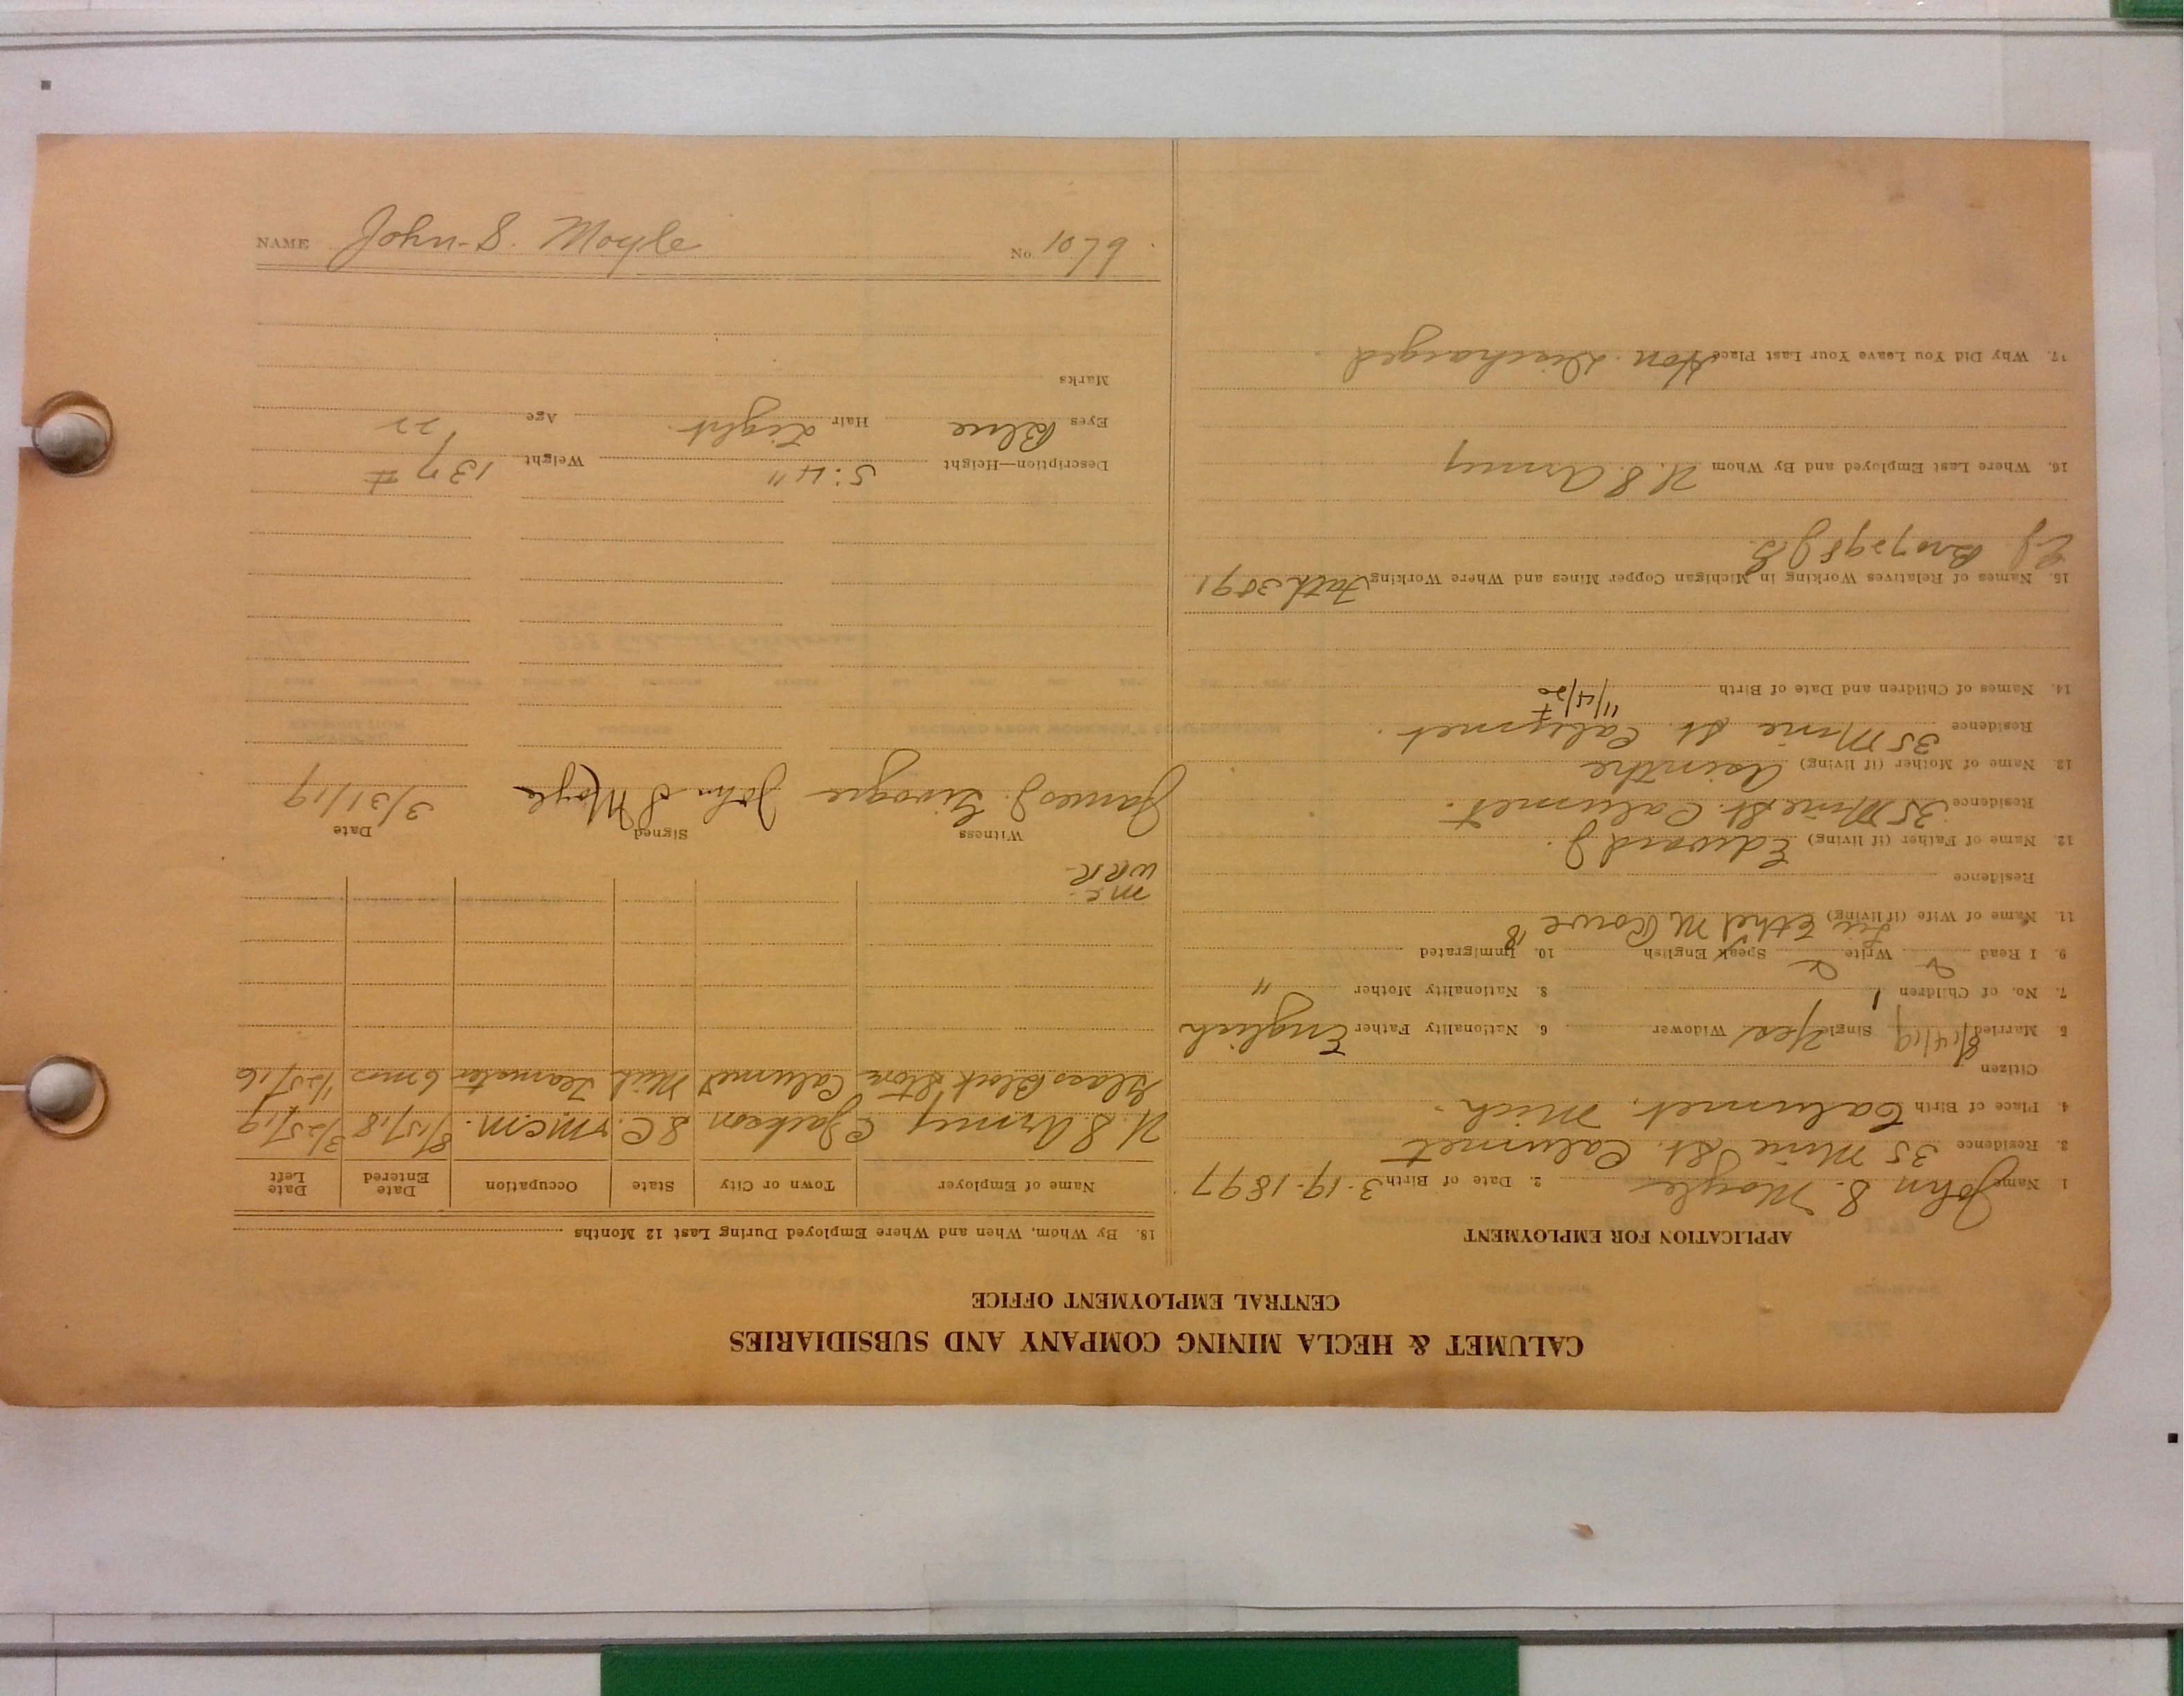 CALUMET & HECLA MINING COMPANY AND SUBSIDIARIES
CENTRAL EMPLOYMENT OFFICE
APPLICATION FOR EMPLOYMENT
1. Name John S. Moyle 2. Date of Birth 3-19-1897
3. Residence 35 Mine St. Calumet
4. Place of Birth Calumet, Mich.
Citizen
5. Married 8/14/19 Single Yes Widower 6. Nationality Father English
7. No. of Children 1 8. Nationality Mother "
9. I Read Write Speak English 10. Immigrated
11. Name of Wife (if living) Ethel M Rowe 18
Residence
12. Name of Father (if living) Edward J.
Residence 35 Mine St. Calumet.
13. Name of Mother (if living)
Residence 35 Mine St. Calumet.
14. Names of Children and Date of Birth 11/4/20
15. Names of Relatives Working in Michigan Copper Mines and Where Working Fath 3091
Bro 7298
16. Where Last Employed and By Whom U.S. Army
17. Why Did You Leave Your Last Place Hon. Discharged
18. By Whom, When and Where Employed During Last 12 Months
Name of Employer Town or City State Occupation Date Entered Date Left
U.S. Army C. Jackson S.C. M.C.M. 8/15/18 3/25/19
Glass Block Store Calumet Mich Teamster 6 mos 1/25/16
mc-
WRR-
Witness Signed Date
James J. John S Moyle 3/31/19
Description—Height 5:4" Weight 137#
Eyes Blue Hair Light Age 22
Marks
NAME John S. Moyle No. 1079